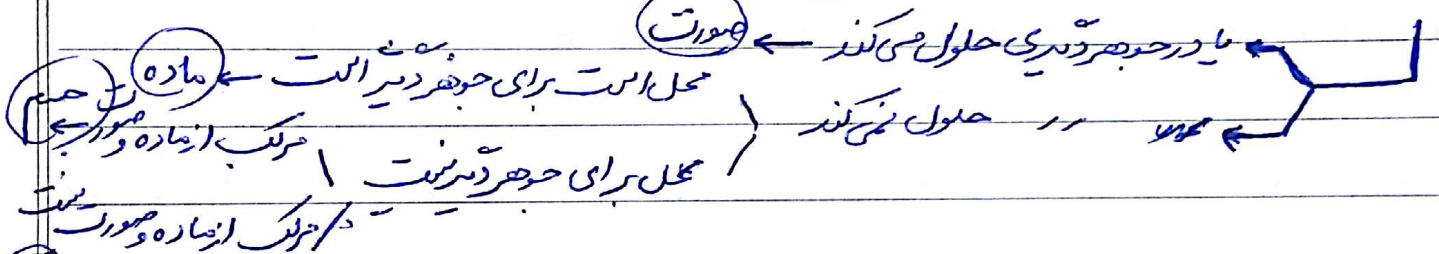 یا در جوهر دیگری حلول می‌کند ← صورت
〃 〃 حلول نمی‌کند
محل است برای جوهر دیگر است ← ماده
محل برای جوهر دیگر نیست
مرکب از ماده و صورت است ← جسم
مرکب از ماده و صورت نیست